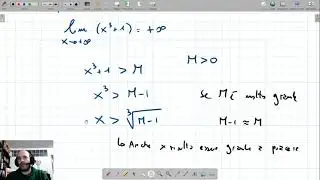 lim (x³+1) = +∞
x→+∞
x³+1 > M    M>0
x³ > M-1    Se M è molto grande
x > ∛(M-1)    M-1 ≈ M
Anche x risulta essere grande a piacere